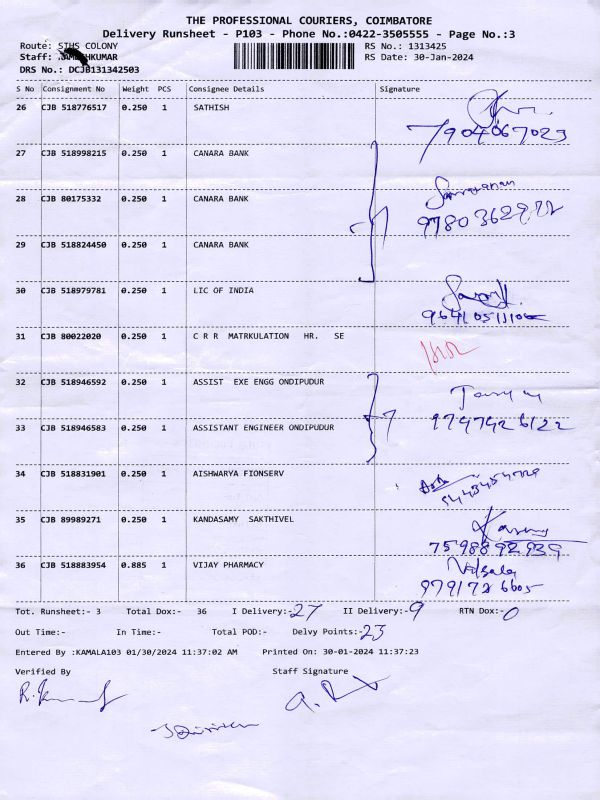 THE PROFESSIONAL COURIERS, COIMBATORE
Delivery Runsheet - P103 - Phone No.:0422-3505555 - Page No.:3
Route: SIHS COLONY RS No.: 1313425
Staff: RS Date: 30-Jan-2024
DRS No.: DCJB131342503
S No Consignment No Weight PCS Consignee Details Signature
26 CJB 518776517 0.250 1 SATHISH
7904067023
27 CJB 518998215 0.250 1 CANARA BANK
28 CJB 80175332 0.250 1 CANARA BANK
29 CJB 518824450 0.250 1 CANARA BANK
30 CJB 518979781 0.250 1 LIC OF INDIA
31 CJB 80022020 0.250 1 C R R MATRKULATION HR. SE
32 CJB 518946592 0.250 1 ASSIST EXE ENGG ONDIPUDUR
33 CJB 518946583 0.250 1 ASSISTANT ENGINEER ONDIPUDUR
34 CJB 518831901 0.250 1 AISHWARYA FIONSERV
35 CJB 89989271 0.250 1 KANDASAMY SAKTHIVEL
7598892939
36 CJB 518883954 0.885 1 VIJAY PHARMACY
Tot. Runsheet:- 3 Total Dox:- 36 I Delivery:-27 II Delivery:-9 RTN Dox:-0
Out Time:- In Time:- Total POD:- Delvy Points:-23
Entered By :KAMALA103 01/30/2024 11:37:02 AM Printed On: 30-01-2024 11:37:23
Verified By Staff Signature